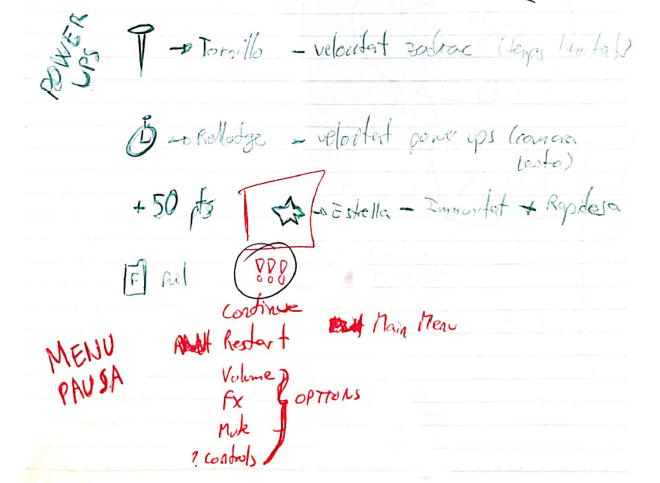 POWER UPS
→ Tornillo - velocitat zodiac (temps limitat)
→ Rellotge - velocitat power ups (camara lenta)
+50 pts
→ Estrella - Immunitat + Rapidesa
F fuel
!!!
Continue
Restart
Main Menu
MENU
PAUSA
Volume
FX
Mute
? Controls
OPTIONS